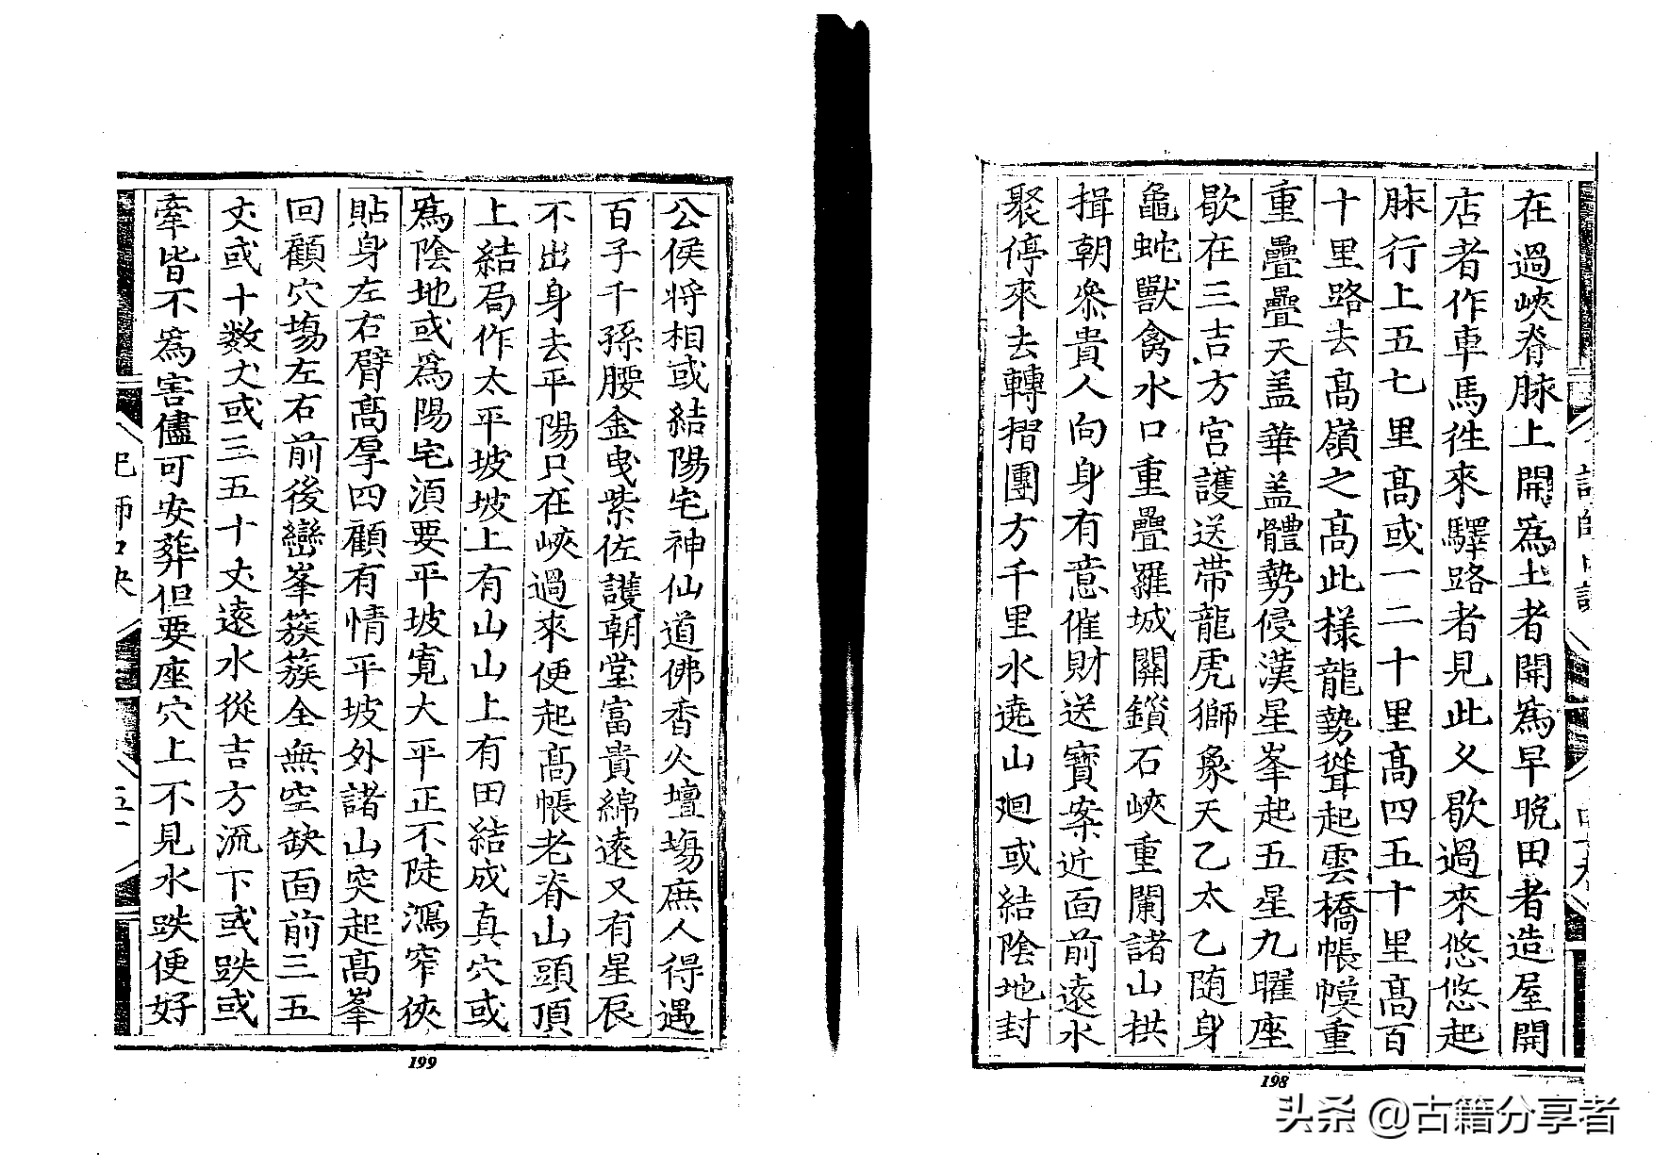 在過峽脊脉上開為土者開為早晩田者造屋開
店者作車馬徃來驛路者見此义歇過來悠悠起
脉行上五七里髙或一二十里髙四五十里髙百
十里路去髙嶺之髙此樣龍勢聳起雲橋帳幙重
重疊疊天盖華盖體勢侵漢星峯起五星九曜座
歇在三吉方宫護送带龍虎獅象天乙太乙随身
龜蛇獸禽水口重疊羅城關鎖石峽重闌諸山拱
揖朝叅貴人向身有意催財送寳案近面前遠水
聚停來去轉摺團方千里水遶山廻或結陰地封
198
公侯将相或結陽宅神仙道佛香火壇塲庶人得遇
百子千孫腰金曳紫佐護朝堂富貴綿遠又有星辰
不出身去平陽只在峽過來便起髙帳老脊山頭頂
上結局作太平坡坡上有山山上有田結成真穴或
爲陰地或爲陽宅湏要平坡寛大平正不陡瀉窄俠
貼身左右臂髙厚四顧有情平坡外諸山突起髙峯
回顧穴塲左右前後巒峯簇簇全無空缺面前三五
丈或十数丈或三五十丈遠水從吉方流下或跌或
牽皆不爲害儘可安葬但要座穴上不見水跌便好
199
头条 @古籍分享者